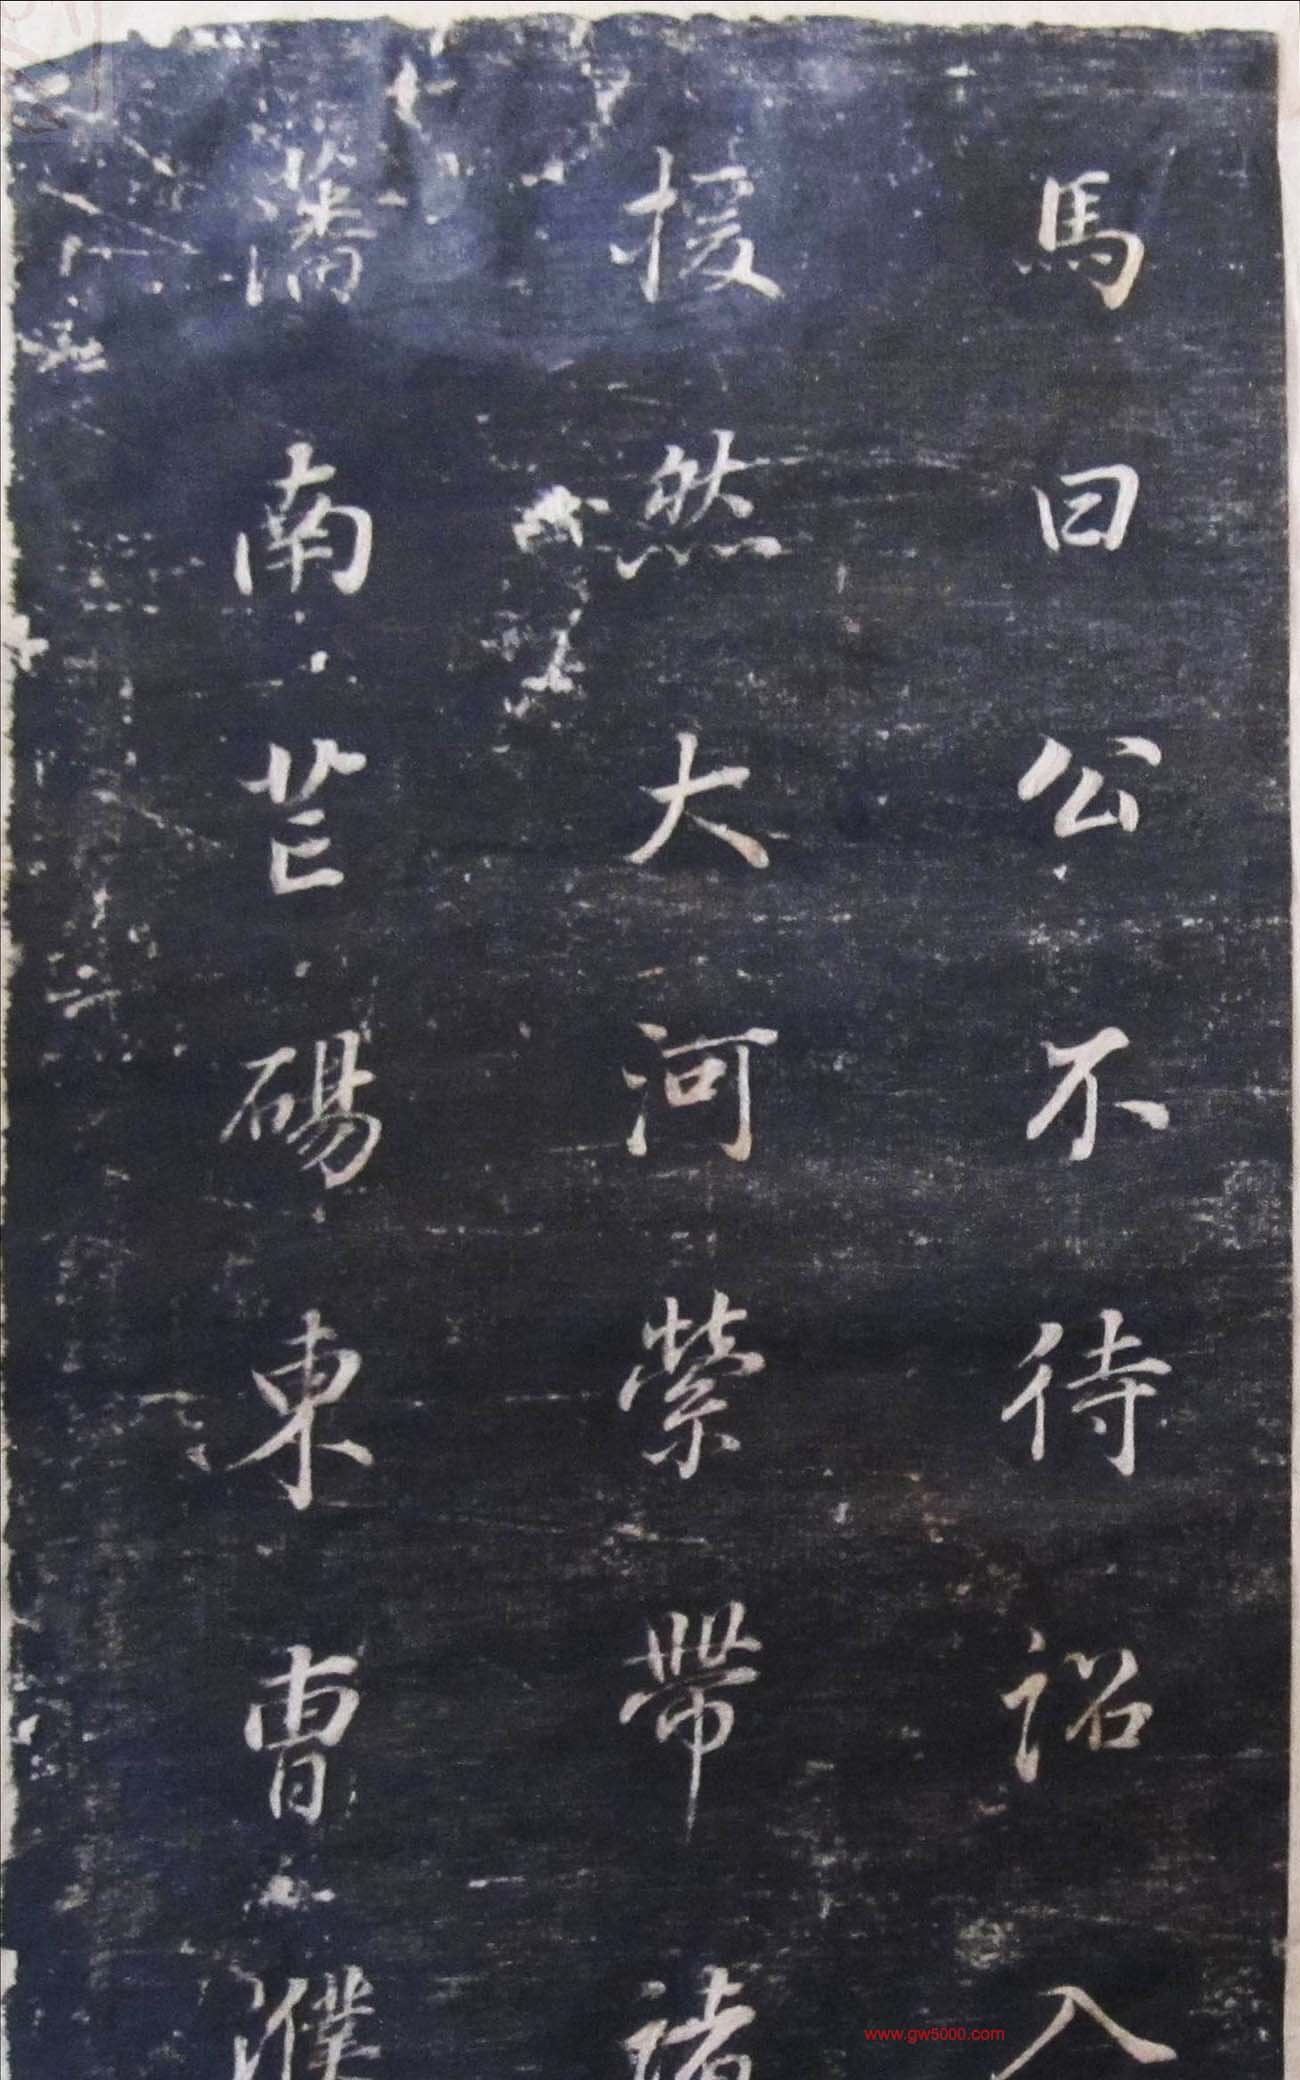 馬曰公不待詔入
援然大河縈帶諸
藩南芒碭東曹濮
www.gw5000.com